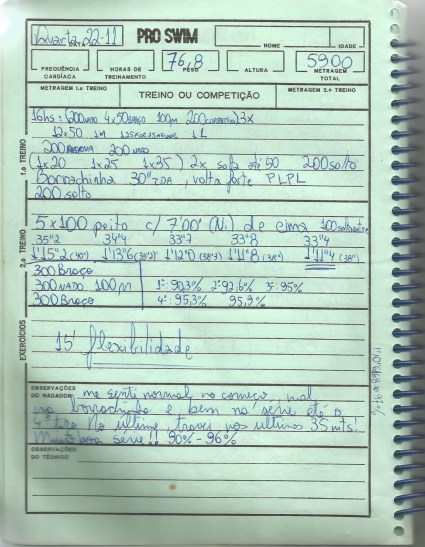 Quarta, 22-11
DATA
PRO SWIM
NOME
IDADE
FREQUÊNCIA CARDÍACA
HORAS DE TREINAMENTO
76,8
PESO
ALTURA
5900
METRAGEM TOTAL
METRAGEM 1.o TREINO
TREINO OU COMPETIÇÃO
METRAGEM 2.o TREINO
1.o TREINO
16hs: 200 NADO 4x50 BRAÇO 100m 200 3x
12x50 1m 1L
200 PERNA 200 NADO
(1x20 1x25 1x35) 2x solta até 50 200 solto
Borrachinha 30" IDA, volta forte PLPL
200 solto
2.o TREINO
5x100 peito c/ 7'00" (Ni) de cima 100 solto
35"2 34"4 33"7 33"8 33"4
1'15"2 (40") 1'13"6 (39"2) 1'12"0 (38"3) 1'11"8 (38") 1'11"4 (38")
300 Braço
300 NADO 100m 1º: 90,3% 2º: 92,6% 3º: 95%
300 Braço 4º: 95,3% 95,9%
EXERCÍCIOS
15' flexibilidade
OBSERVAÇÕES DO NADADOR
me senti normal no começo, mal
na borrachinha e bem na série até o
4º tiro. No último, travei nos últimos 35 mts!
Muito boa série!! 90% - 96%
OBSERVAÇÕES DO TÉCNICO